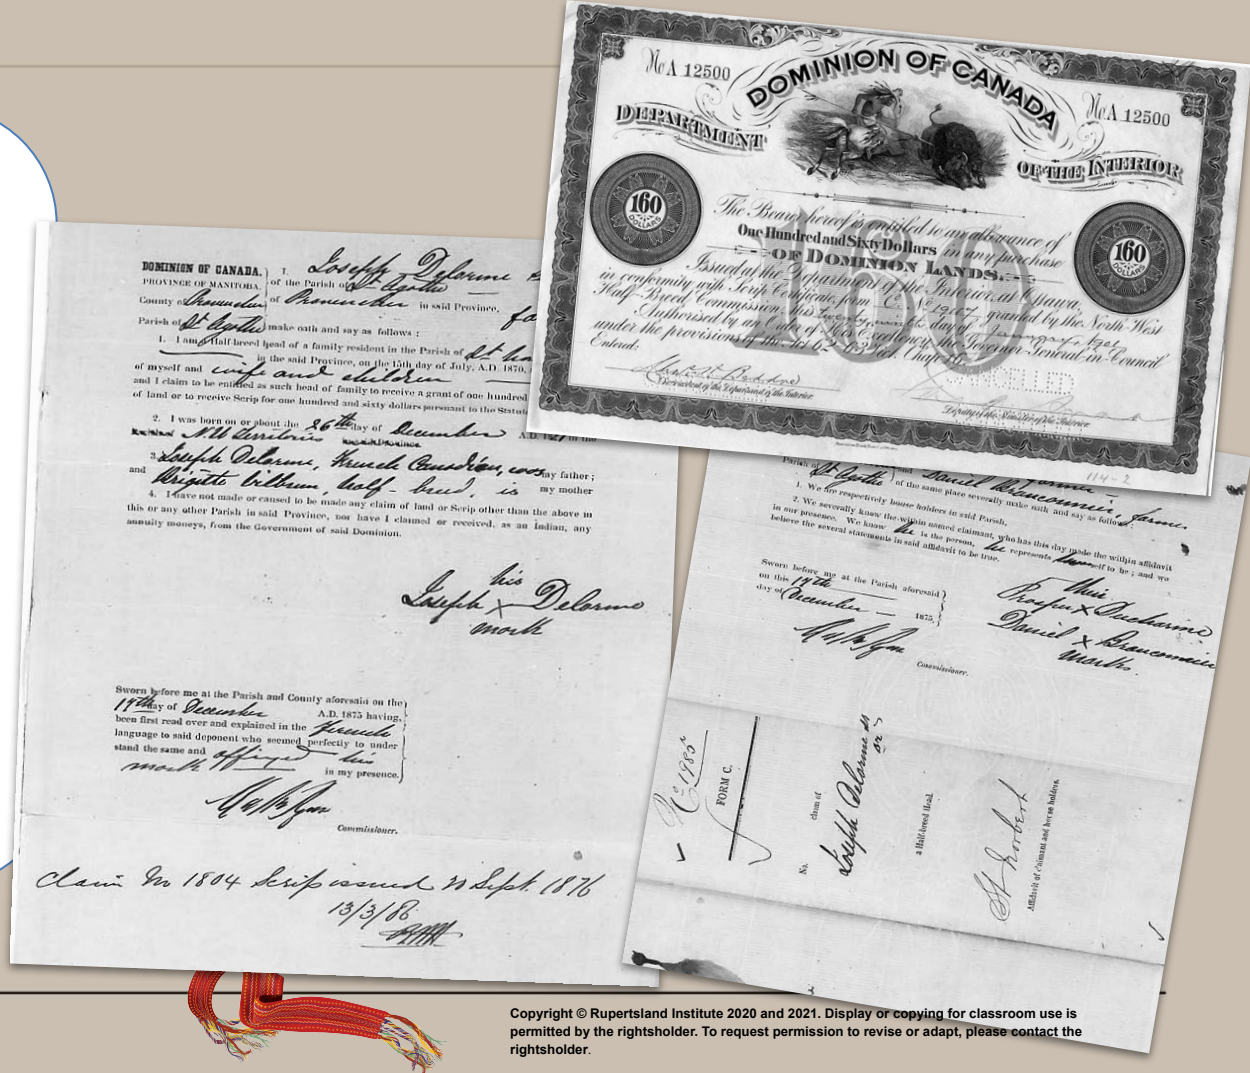 No A 12500
DOMINION OF CANADA
No A 12500
DEPARTMENT
OF THE INTERIOR
160
DOLLARS
160
DOLLARS
160
The Bearer hereof is entitled to an allowance of
One Hundred and Sixty Dollars in any purchase
OF DOMINION LANDS.
Issued at the Department of the Interior, at Ottawa,
in conformity with Scrip Certificate, form C No granted by the North-West
Half-Breed Commission, this day of
Authorised by an Order of His Excellency, the Governor-General in Council
under the provisions of the Act
Entered:
of the Department of the Interior
CANCELLED
Deputy of the Minister of the Interior
114-2
DOMINION OF CANADA.
PROVINCE OF MANITOBA.
County of Provencher
Parish of St Agathe
I, Joseph Delorme
of the Parish of St Agathe
of Provencher in said Province,
make oath and say as follows:
1. I am a Half-breed head of a family resident in the Parish of St
in the said Province, on the 15th day of July, A.D. 1870,
of myself and wife and children
and I claim to be entitled as such head of family to receive a grant of one hundred
of land or to receive Scrip for one hundred and sixty dollars pursuant to the Statute
2. I was born on or about the 26th day of December A.D.
N.W. Territories
3. Joseph Delorme, French Canadian, was my father;
and Brigitte half-breed, is my mother
4. I have not made or caused to be made any claim of land or Scrip other than the above in
this or any other Parish in said Province, nor have I claimed or received, as an Indian, any
annuity moneys, from the Government of said Dominion.
his
Joseph X Delorme
mark
Sworn before me at the Parish and County aforesaid on the
17th day of December A.D. 1875 having,
been first read over and explained in the French
language to said deponent who seemed perfectly to under
stand the same and affixed his
mark in my presence.
Commissioner.
Claim No 1804 Scrip issued 20 Sept. 1876
13/3/86
Parish of St Agathe
of the same place severally make oath and say as follows:
1. We are respectively house holders in said Parish,
2. We severally know the within named claimant, who has this day made the within affidavit
in our presence. We know he is the person, he represents himself to be; and we
believe the several statements in said affidavit to be true.
Sworn before me at the Parish aforesaid
on this 17th
day of December 1875,
Commissioner.
their
X Ducharme
Daniel X Branconnier
marks.
FORM C.
No.
claim of
Joseph Delorme
a Half-breed Head.
St Norbert
Affidavit of claimant and horse holders.
Copyright © Rupertsland Institute 2020 and 2021. Display or copying for classroom use is
permitted by the rightsholder. To request permission to revise or adapt, please contact the
rightsholder.